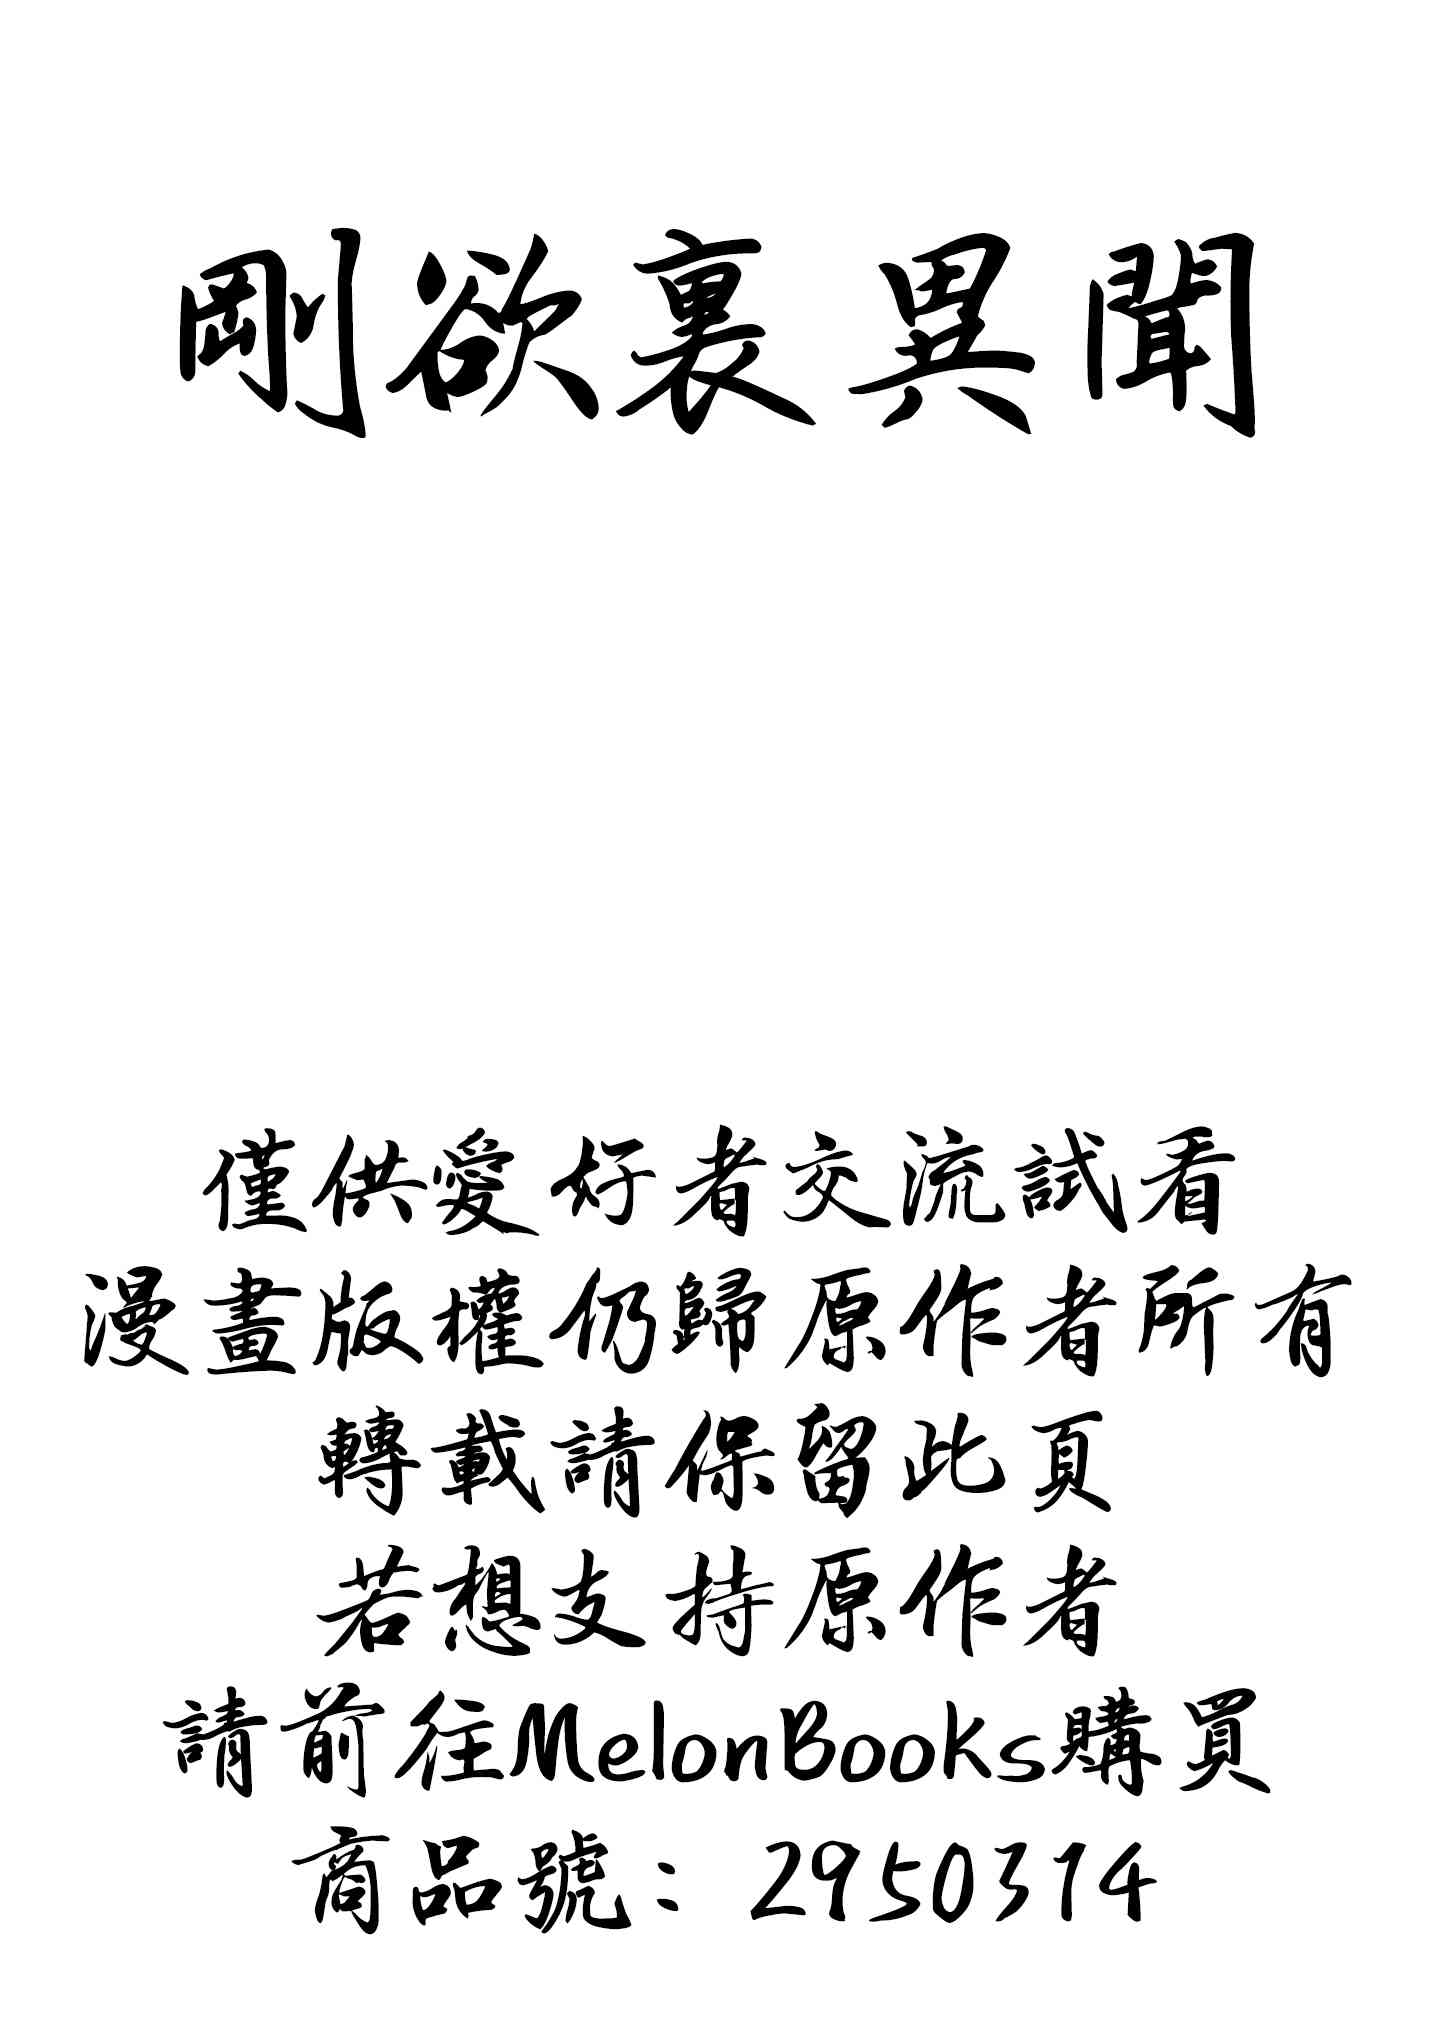 剛欲裏異聞
僅供愛好者交流試看
漫畫版權仍歸原作者所有
轉載請保留此頁
若想支持原作者
請前往MelonBooks購買
商品號：2950314